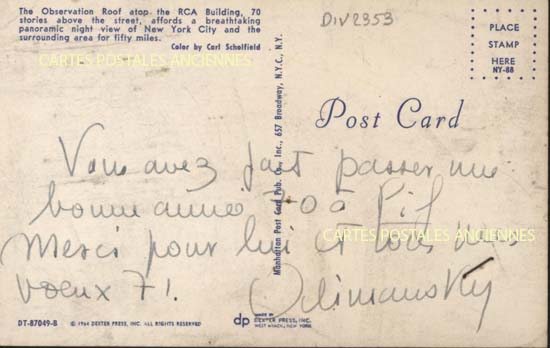 The Observation Roof atop the RCA Building, 70
stories above the street, affords a breathtaking
panoramic night view of New York City and the
surrounding area for fifty miles.
Color by Carl Scholfield
CARTES POSTALES ANCIENNES
DIV2353
PLACE
STAMP
HERE
NY-88
Manhattan Post Card Pub. Co., Inc., 657 Broadway, N.Y.C., N.Y.
Post Card
Vous avez fait passer une
bonne année 70 à Pif
Merci pour lui et tous mes
voeux 71.
CARTES POSTALES ANCIENNES
DT-87049-B
© 1964 DEXTER PRESS, INC. ALL RIGHTS RESERVED
dp
MADE BY
DEXTER PRESS, INC.
WEST NYACK, NEW YORK